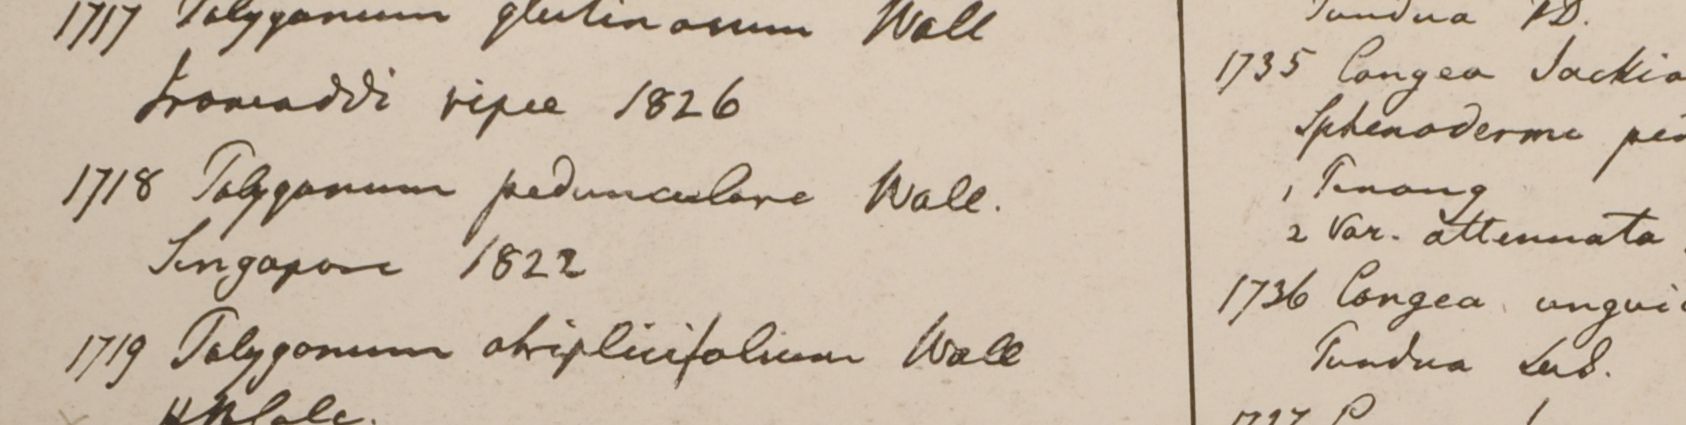 1717 Polygonum glutinosum Wall
Irawaddi ripae 1826
1718 Polygonum pedunculare Wall.
Singapore 1822
1719 Polygonum atriplicifolium Wall
Tundua
1735 Congea Jackia
Sphenoderme pen
1 Penang
2 Var. attenuata
1736 Congea ungui
Tundua